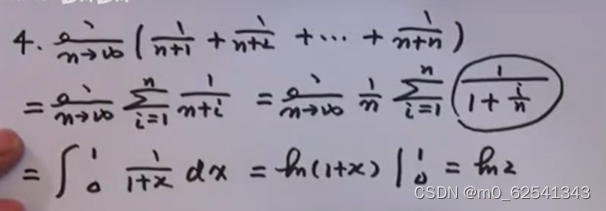 4. lim n→∞ ( 1/(n+1) + 1/(n+2) + ⋯ + 1/(n+n) )
= lim n→∞ ∑ i=1 n 1/(n+i) = lim n→∞ 1/n ∑ i=1 n 1/(1 + i/n)
= ∫ 0 1 1/(1+x) dx = ln(1+x) | 0 1 = ln2
CSDN @m0_62541343